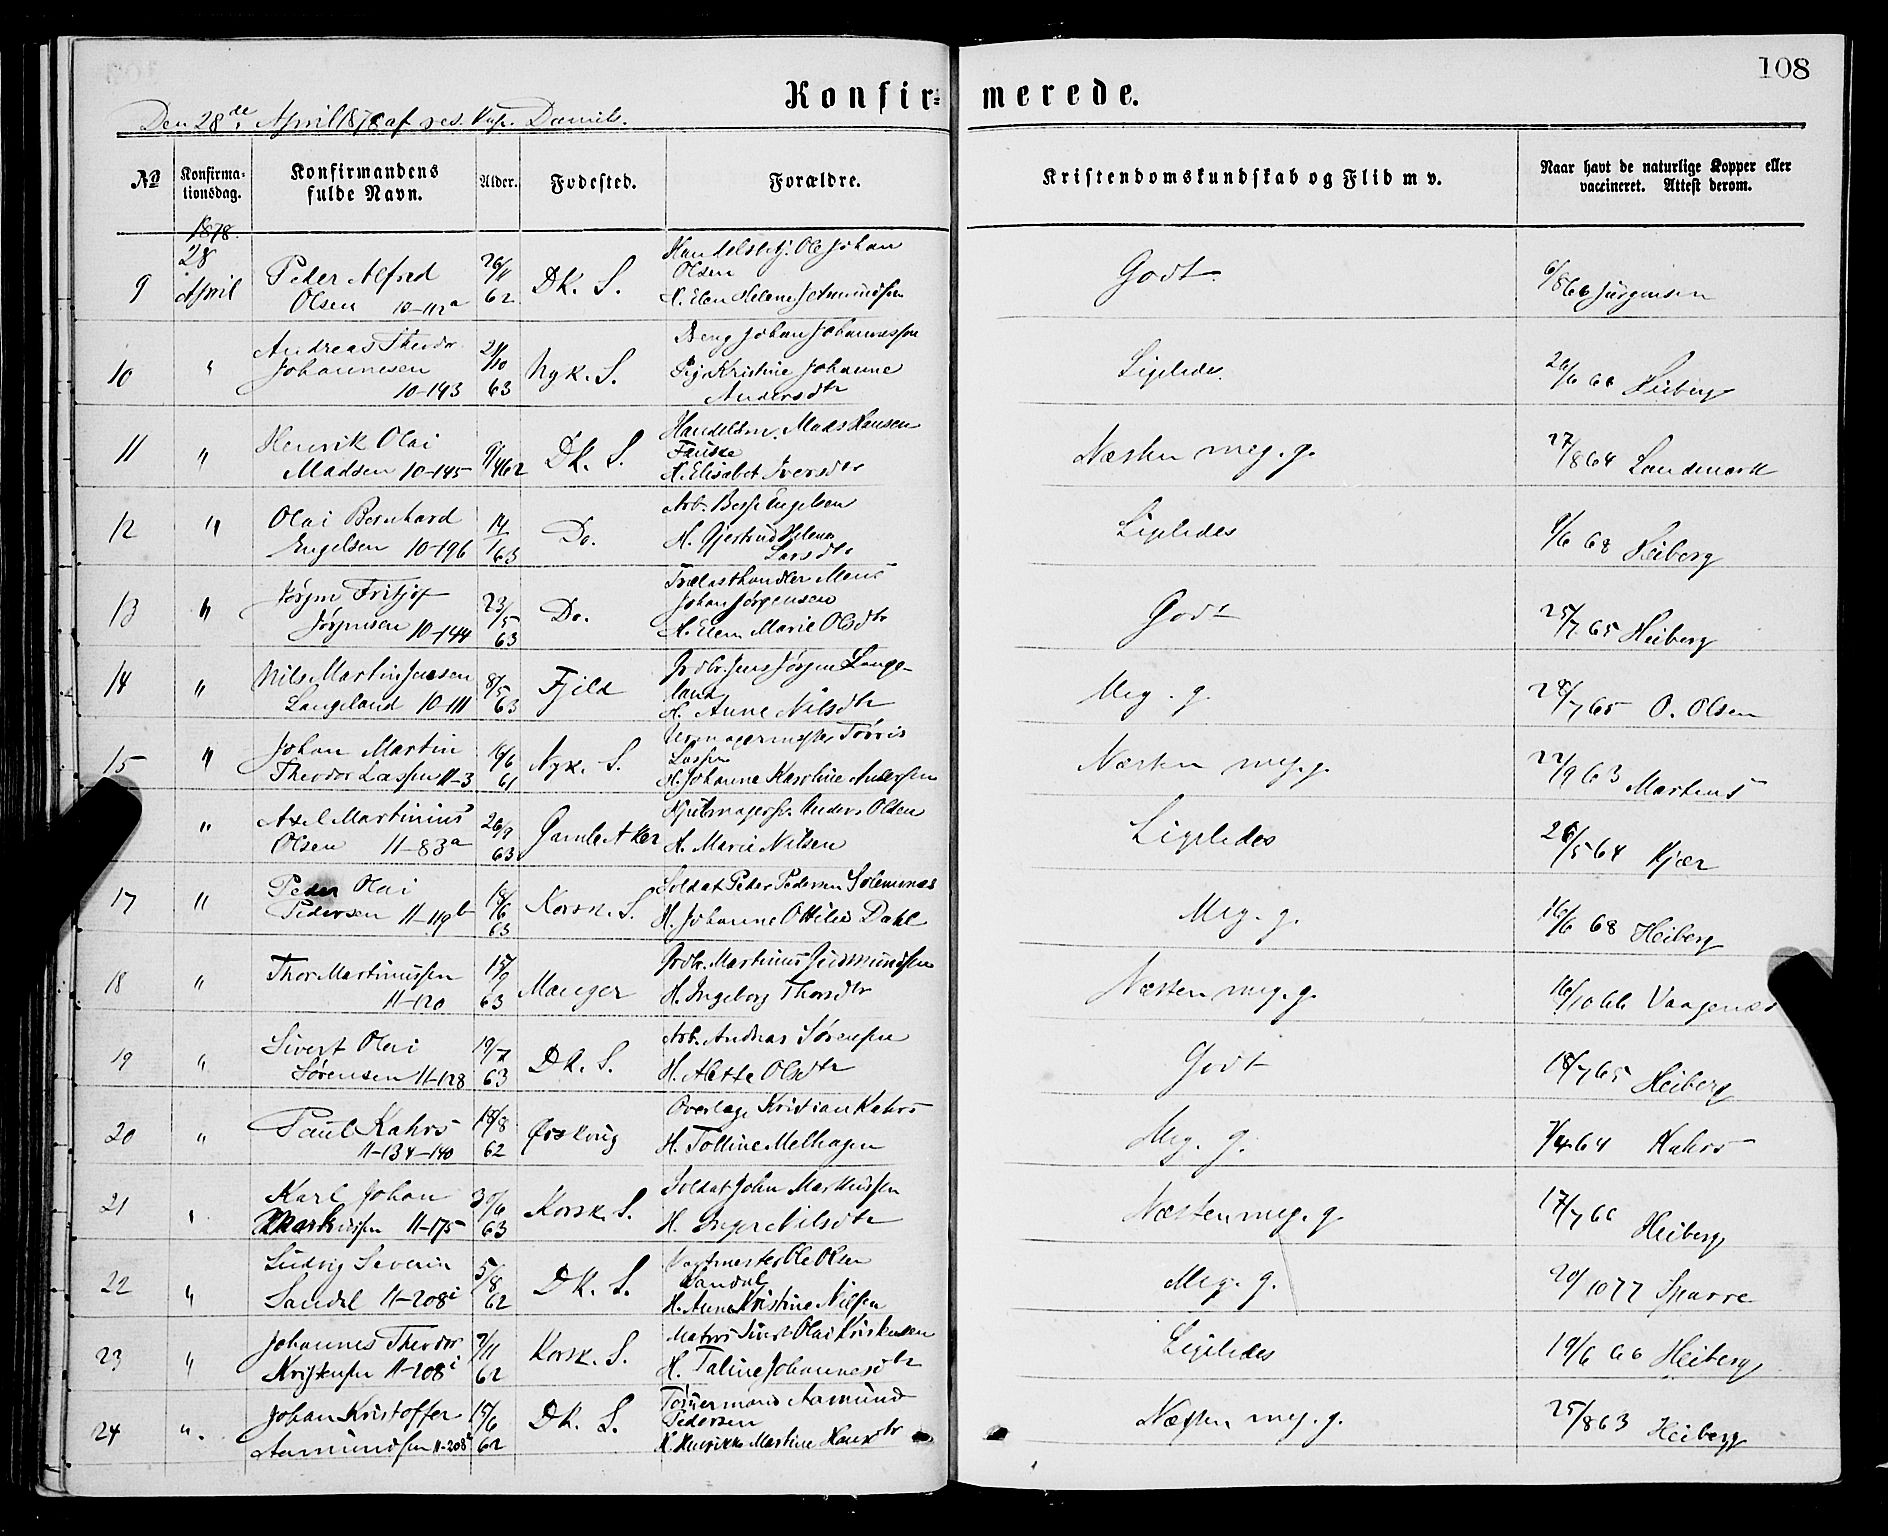 108
Konfir= merede.
Den 28de April 1878 af res. Kap. Daniels.
No Konfirma-tionsdag. Konfirmandens fulde Navn. Alder. Fødested. Forældre. Kristendomskundskab og Flid m v. Naar havt de naturlige Kopper eller vaccineret. Attest derom.
1878.
28
9 April Peder Alfred 26/11 DK. S. Ole Johan Godt 6/8 66 Jürgensen
Olsen 10-112a 62 Olsen
H. Elen Helene
10 " Andreas Theodor 21/10 Nyk. S. Johan Johannessen Ligeledes. 26/6 66 Heiberg
Johannesen Pig Kristine Johanne
10-193 63 Andersdtr
11 " Henrik Olai DK. S. Handelsm. Mads Hansen Næsten meg. g. 27/8 64 Landmark
Madsen 10-145 62 Fauske
H. Elisabet Iversdtr
12 " Olai Bernhard 14/1 Do. Arb. Engelsen Ligeledes 9/6 68 Heiberg
Engelsen 10-196 63 H. Gjertrud Helena
Larsdtr
13 " Jørgen Fritjof 23/5 Do. Trælasthandler Mens Godt 25/7 65 Heiberg
Jørgensen 10-144 63 Johan Jørgensen
H. Elen Marie Olsdtr
14 " Nils Martin Jensen 8/5 Fjeld Grdbr. Jens Jørgen Lange- Meg. g. 28/7 65 O. Olsen
Langeland 10-111 63 land
H. Anne Nilsdtr
15 " Johan Martin 16/6 Nyk. S. Tørris Næsten meg. g. 22/9 63 Martens
Theodor Lassen 11-3 61 Lassen
H. Johanne Karoline Andersen
" Axel Martinius 26/9 Gamle Aker Anders Olsen Ligeledes 26/5 64 Kjær
Olsen 11-83a 63. H. Marie Nilsen
17 " Peder Olai 18/6 Korsk. S. Soldat Peder Pedersen Solemnæs Meg. g. 16/6 68 Heiberg
Pedersen 11-119b 63 H. Johanne Ottilie Dahl
18 " Thor Martinussen 15/9 Manger Grdbr. Martinus Gudmundsen Næsten meg. g. 16/10 66 Vaagenæs
11-120 63 H. Ingeborg Thorsdtr
19 " Sivert Olai 19/7 DK. S. Arb. Andreas Sørensen Godt 18/7 65 Heiberg
Sørensen 11-128 63 H. Alette Olsdtr
20 " Paul Kahrs 18/8 Ørskoug Overlæge Kristian Kahrs Meg. g. 7/4 64 Kahrs
11-134-140 62 H. Tolline Melhagen
21 " Karl Johan 30/6 Korsk. S. Soldat John Markussen Næsten meg. g. 17/7 66 Heiberg
Markussen 11-175 63 H. Inger Nilsdtr
22 " Ludvig Severin 5/8 DK. S. Ole Olsen Meg. g. 20/10 77 Sparre
Sandal 11-208i 62 Sandal
H. Anne Kristine Nilsen
23 " Johannes Theodor 7/11 Korsk. S. Matros Olai Kristensen Ligeledes 19/6 66 Heiberg
Kristensen 11-208i 62 H. Taline Johannesdtr
24 " Johan Kristoffer 15/6 DK. S. Tømmermand Aamund Næsten meg. g. 25/8 63 Heiberg
Aamundsen 11-208i 62 Pedersen
H. Henrikke Martine Hansdtr